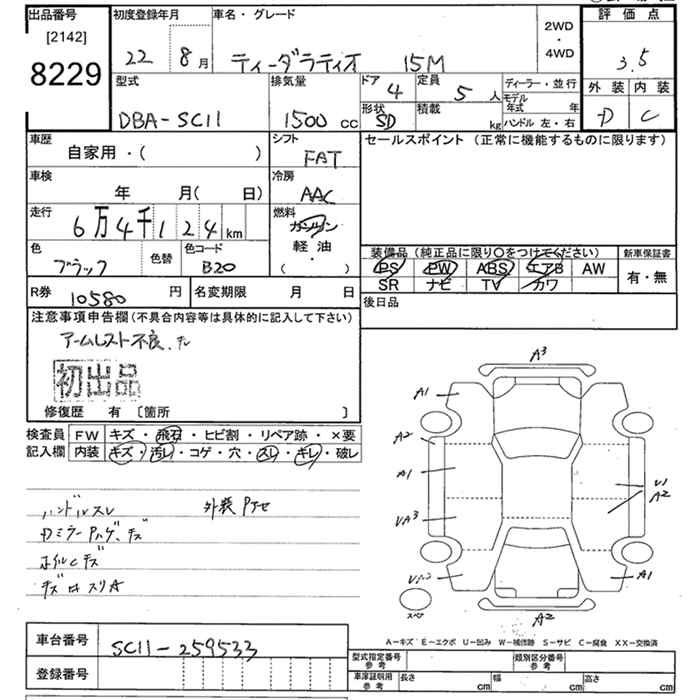 出品番号 初度登録年月 車名・グレード 2WD・4WD 評価点
[2142]
8229 22 8月 ティーダラティオ 15M 3.5
型式 排気量 ドア 4 定員 5人 ディーラー・並行 外装 内装
DBA-SC11 1500cc 形状 SD 積載 kg モデル年式 年 D C
ハンドル 左・右
車歴 シフト セールスポイント (正常に機能するものに限ります)
自家用・( ) FAT
車検 冷房
年 月( 日) AAC
走行 燃料
6万4千124km ガソリン
軽油
( )
色 色替 色コード 装備品 (純正品に限り○をつけてください) 新車保証書
ブラック B20 PS PW ABS エアB AW 有・無
SR ナビ TV カワ
R券 10580円 名変期限 月 日 後日品
注意事項申告欄 (不具合内容等は具体的に記入して下さい)
アームレスト不良
初出品
修復歴 有 [箇所 ]
検査員 FW キズ・飛石・ヒビ割・リペア跡・×要
記入欄 内装 キズ・汚レ・コゲ・穴・スレ・キレ・破レ
ハンドルスレ 外装
ドミラー キズ
ホイルキズ
A3
A1
A2
A1
U1
A2
UA3
A1
A2
A-キズ E-エクボ U-凹み W-補修跡 S-サビ C-腐食 XX-交換済
車台番号 SC11-259533 型式指定番号 参考 類別区分番号 参考
登録番号 車庫証明用 参考 長さ cm 幅 cm 高さ cm